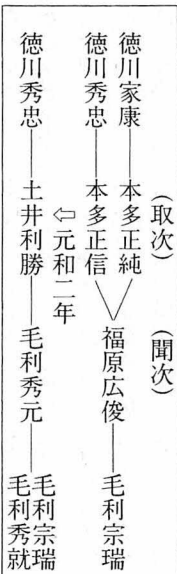 (取次) (聞次)
徳川家康――本多正純
徳川秀忠――本多正信＞福原広俊――毛利宗瑞
⇦元和二年
徳川秀忠――土井利勝――毛利秀元――毛利宗瑞
毛利秀就